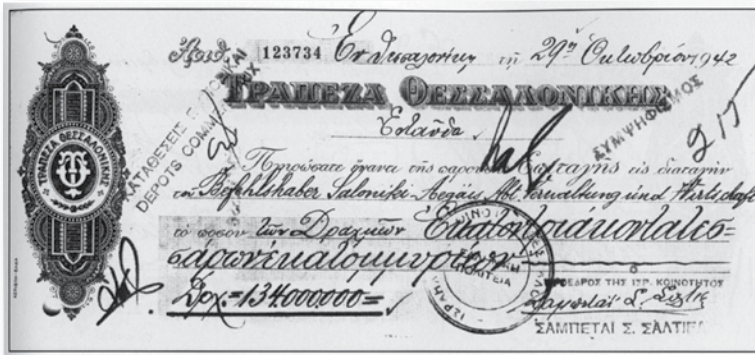 Ἀριθ. 123734 Ἐν Θεσσαλονίκῃ τῇ 29ῃ Ὀκτωβρίου 1942
ΤΡΑΠΕΖΑ ΘΕΣΣΑΛΟΝΙΚΗΣ
Ἐνταῦθα
ΣΥΜΨΗΦΙΣΜΟΣ
ΚΑΤΑΘΕΣΕΙΣ
DEPOTS COMM
ΤΡΑΠΕΖΑ ΘΕΣΣΑΛΟΝΙΚΗΣ
Πληρώσατε ἔναντι τῆς παρούσης Ἐπιταγῆς εἰς διαταγὴν
τοῦ Befehlshaber Saloniki-Aegäis Abt. Verwaltung und Wirtschaft
τὸ ποσὸν τῶν Δραχμῶν Ἑκατοντριάκοντατεσ-
σάρωνἑκατομμυρίων
Δρχ=134000000=
ΠΡΟΕΔΡΟΣ ΤΗΣ ΙΣΡ. ΚΟΙΝΟΤΗΤΟΣ
ΣΑΜΠΕΤΑΙ Σ. ΣΑΛΤΙΕΛ